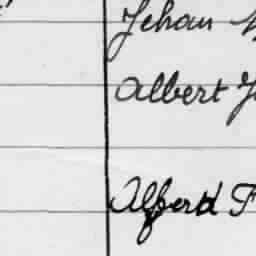 Jehan
Albert
Alferd F